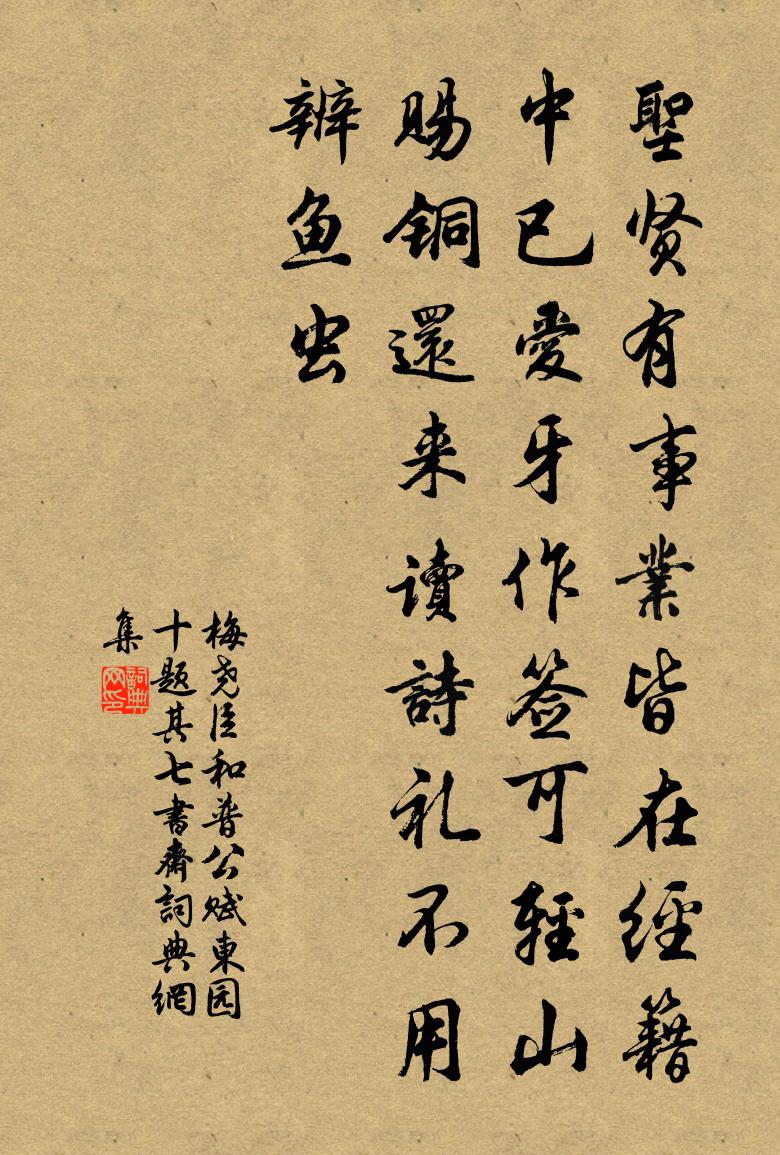 聖贤有事業皆在經籍
中已愛牙作签可輕山
賜铜還来读詩礼不用
辨鱼虫
梅尧臣和普公赋東园
十题其七書齋詞典網
集
詞典网印